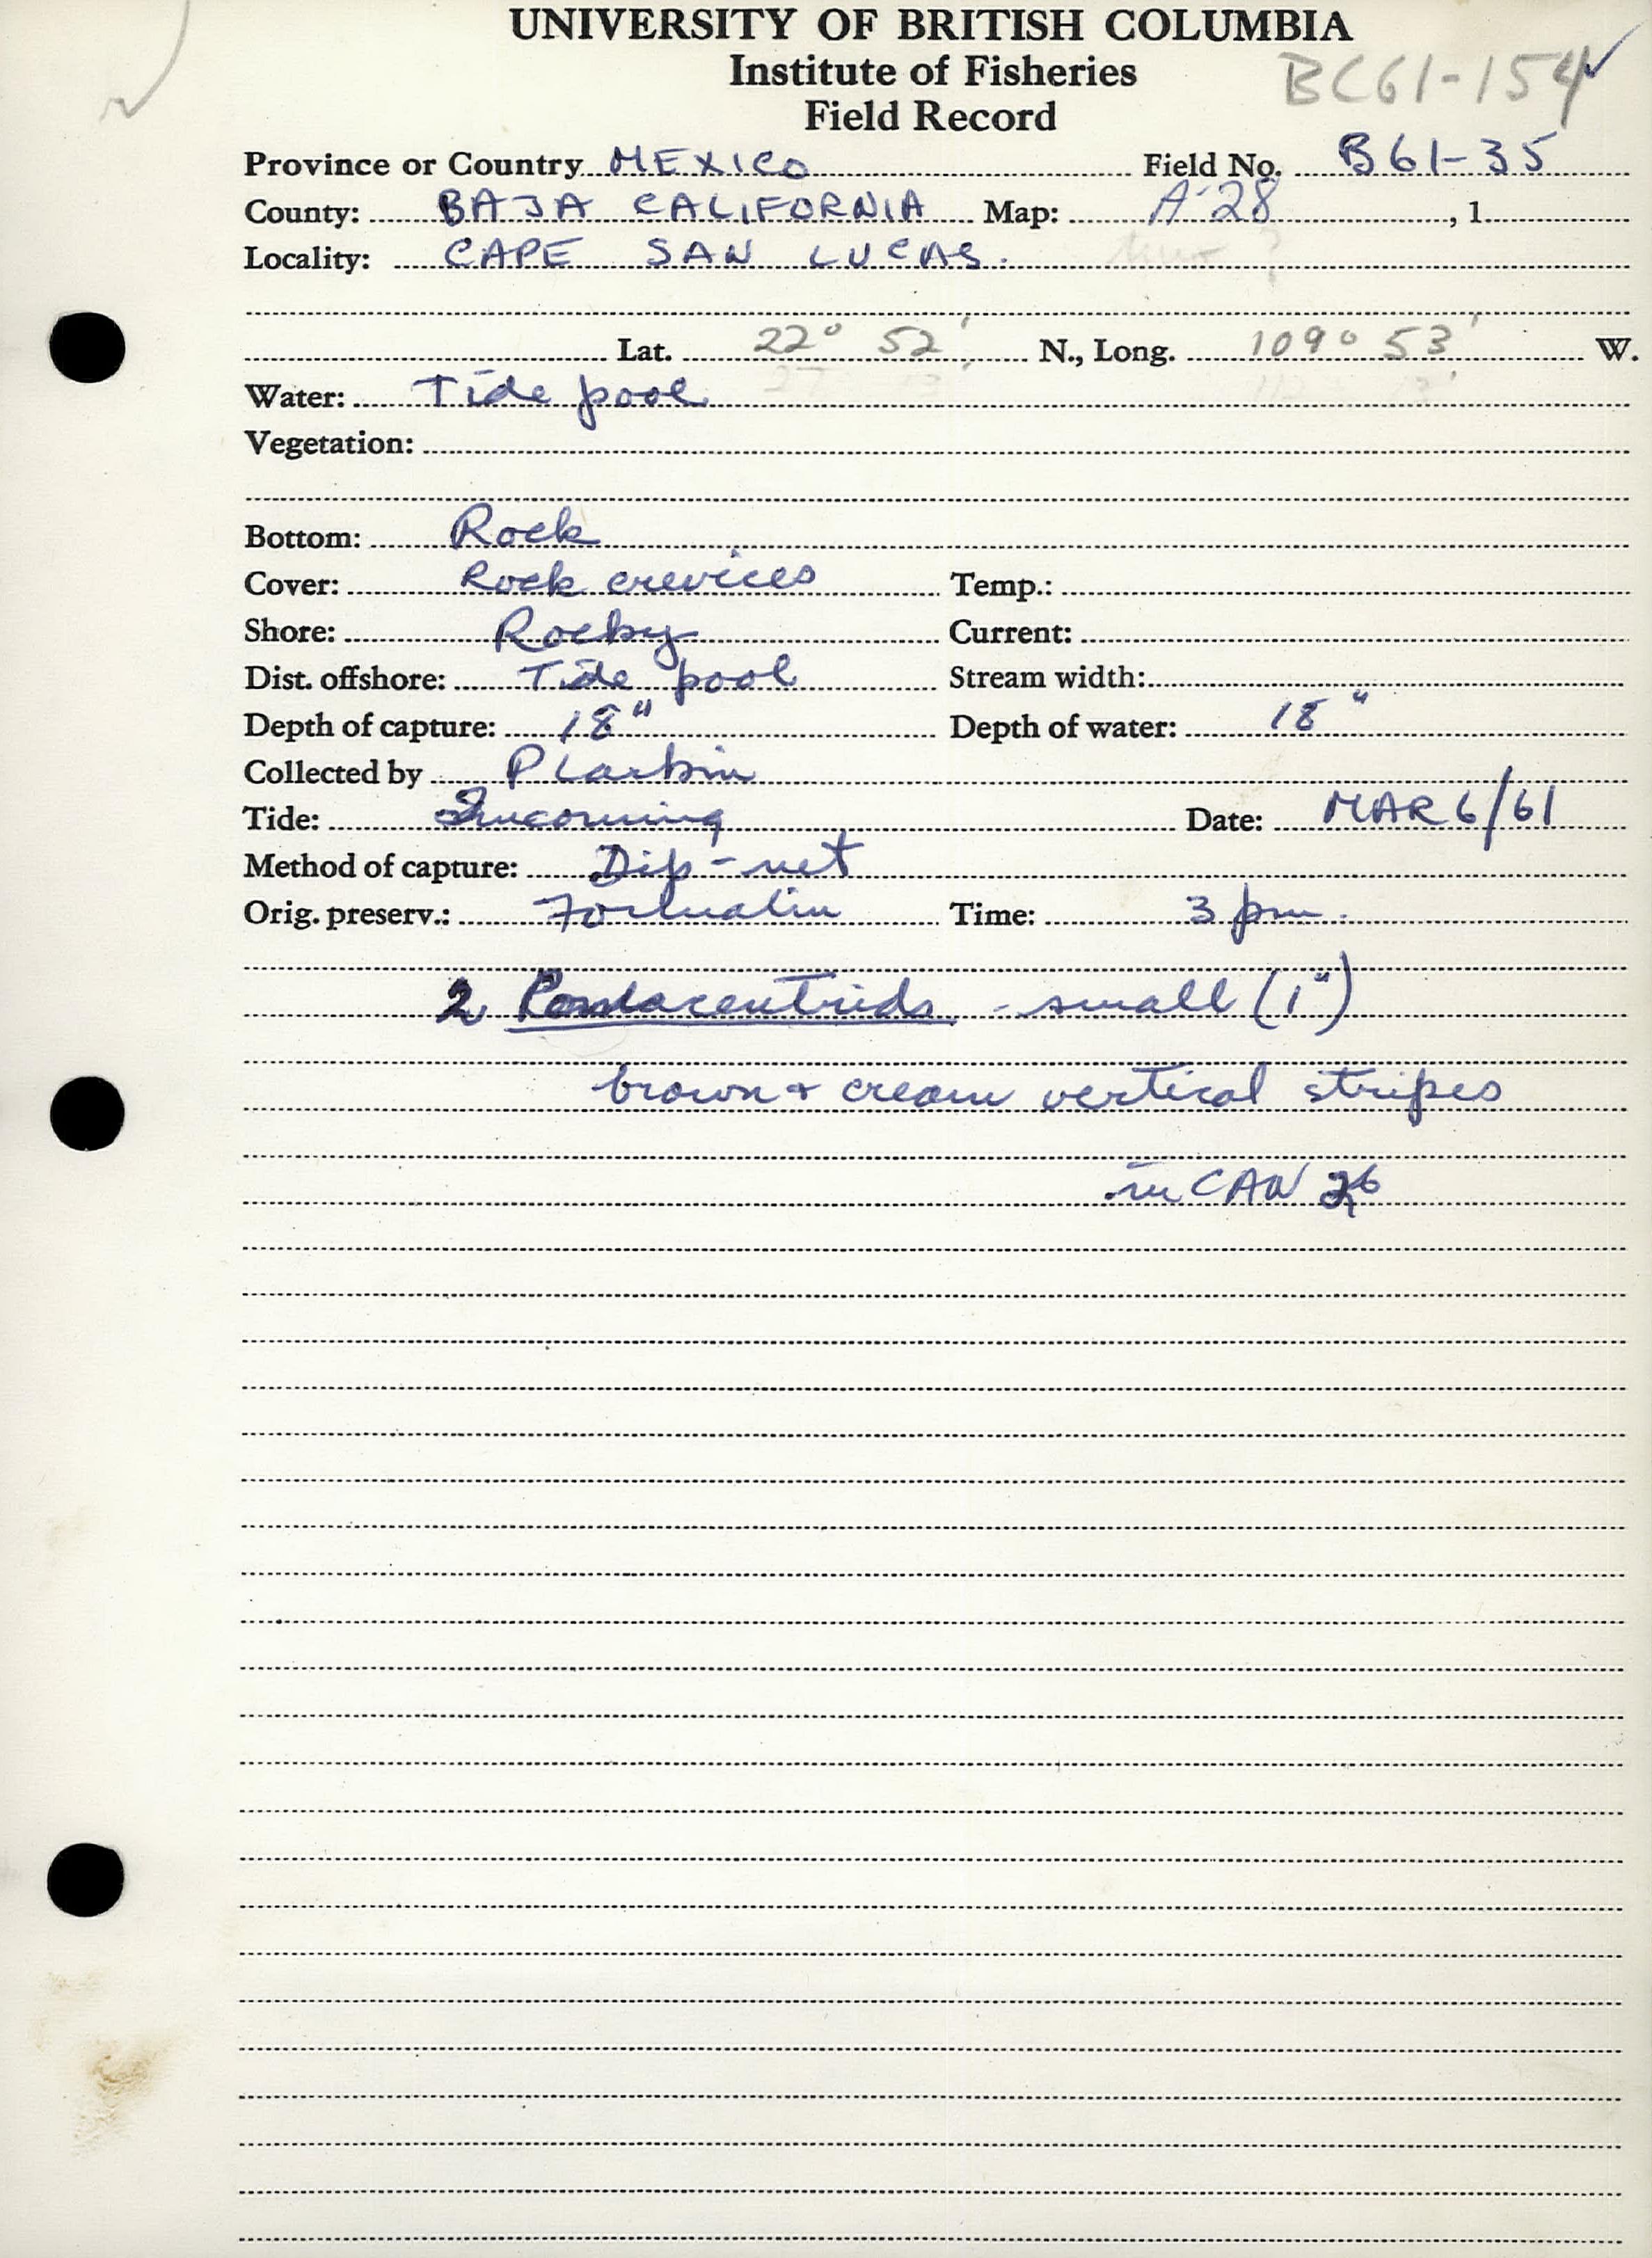 UNIVERSITY OF BRITISH COLUMBIA
Institute of Fisheries BC61-154
Field Record
Province or Country MEXICO Field No. B61-35
County: BAJA CALIFORNIA Map: A-28, 1.
Locality: CAPE SAN LUCAS.
Lat. 22° 52' N., Long. 109° 53' W.
Water: Tide pool
Vegetation:
Bottom: Rock
Cover: Rock crevices Temp.:
Shore: Rocky Current:
Dist. offshore: Tide pool Stream width:
Depth of capture: 18" Depth of water: 18"
Collected by P Larkin
Tide: Incoming Date: MAR 6/61
Method of capture: Dip-net
Orig. preserv.: Formalin Time: 3 pm.
2 Pomacentrids - small (1")
brown + cream vertical stripes
in CAN 26